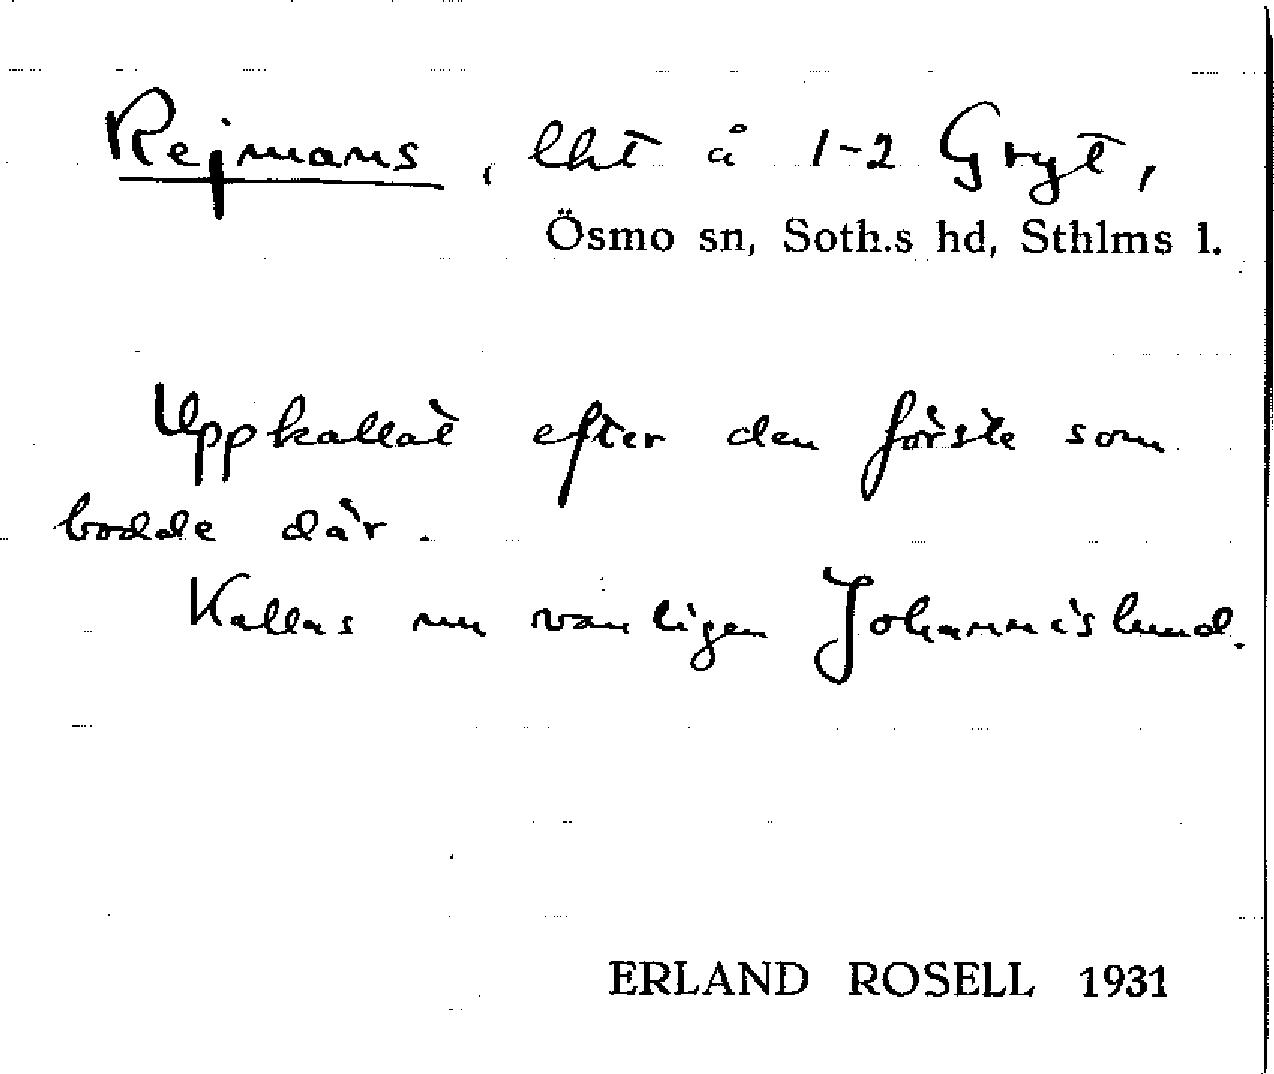 Rejmans, lht å 1-2 Gryt,
Ösmo sn, Soth.s hd, Sthlms l.
Uppkallat efter den förste som
bodde där.
Kallas nu vanligen Johanneslund.
ERLAND ROSELL 1931